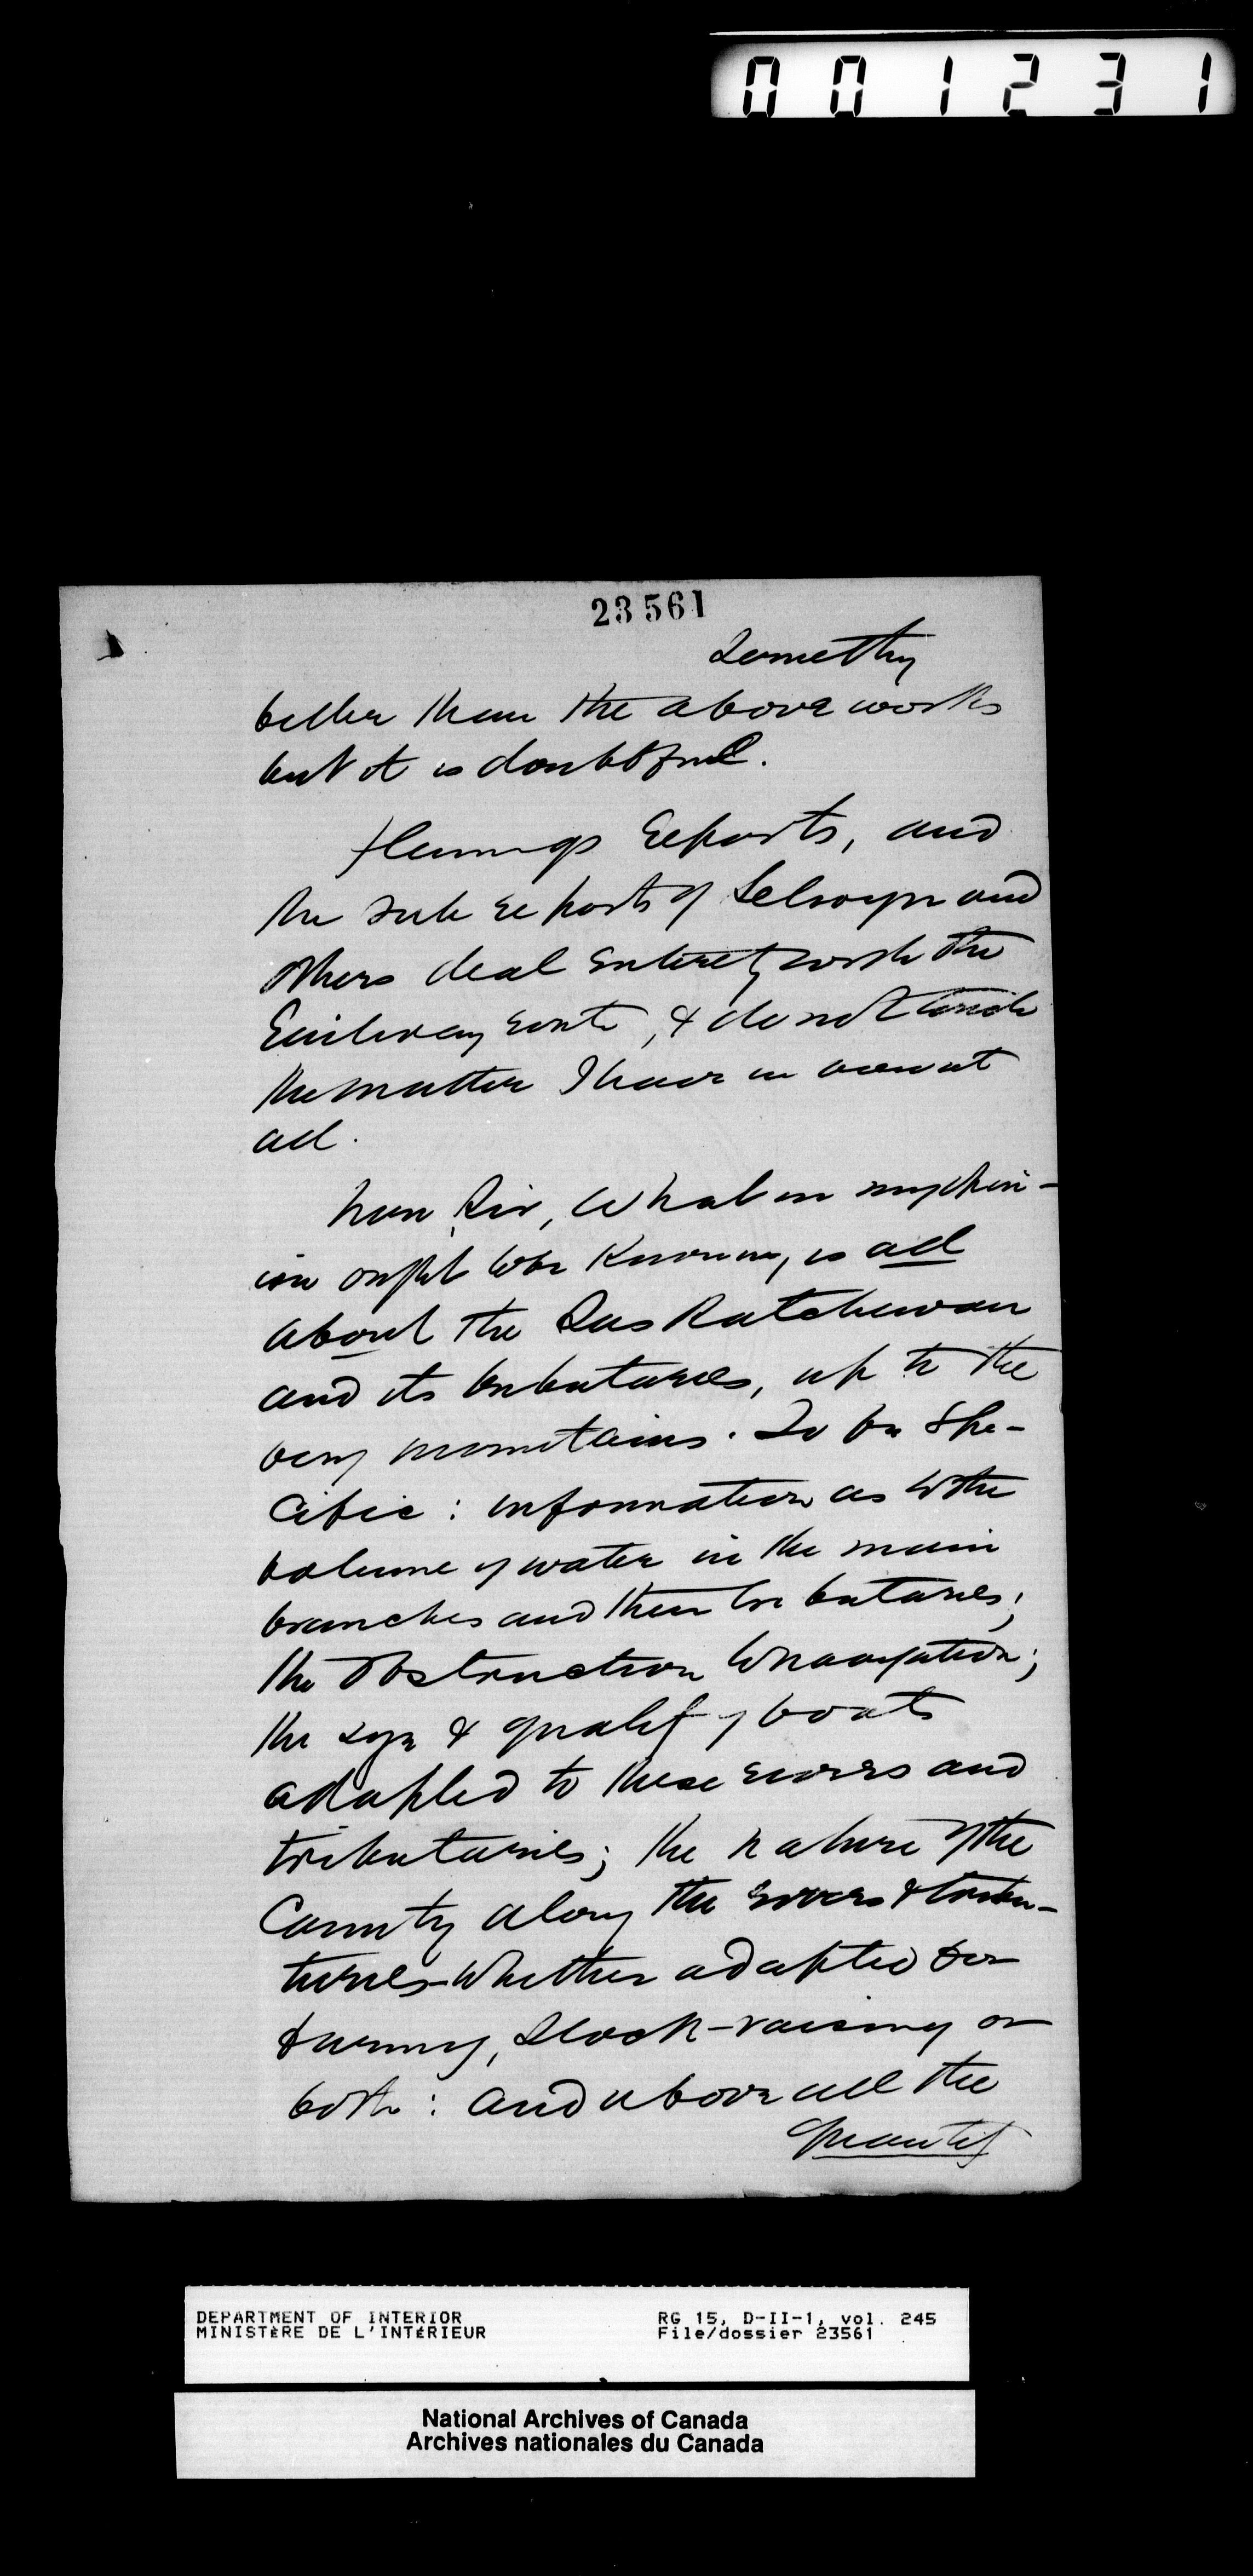 001231
23561
Something
better than the above works
but it is doubtful.
Flemings Reports, and
the sub reports of Selwyn and
others deal entirely with the
Railway route, & do not touch
the matter I have in view at
all.
Now Sir, what in my opin-
ion ought to be known, is all
about the Saskatchewan
and its tributaries, up to the
very mountains. To be spe-
cific: information as to the
volume of water in the main
branches and their tributaries;
the obstruction to navigation;
the size & quality of boats
adapted to these rivers and
tributaries; the nature of the
Country along the rivers & tribu-
taries - whether adapted for
farming, stock-raising or
both: and above all the
quantity
DEPARTMENT OF INTERIOR
MINISTÈRE DE L'INTÉRIEUR
RG 15, D-II-1, vol. 245
File/dossier 23561
National Archives of Canada
Archives nationales du Canada